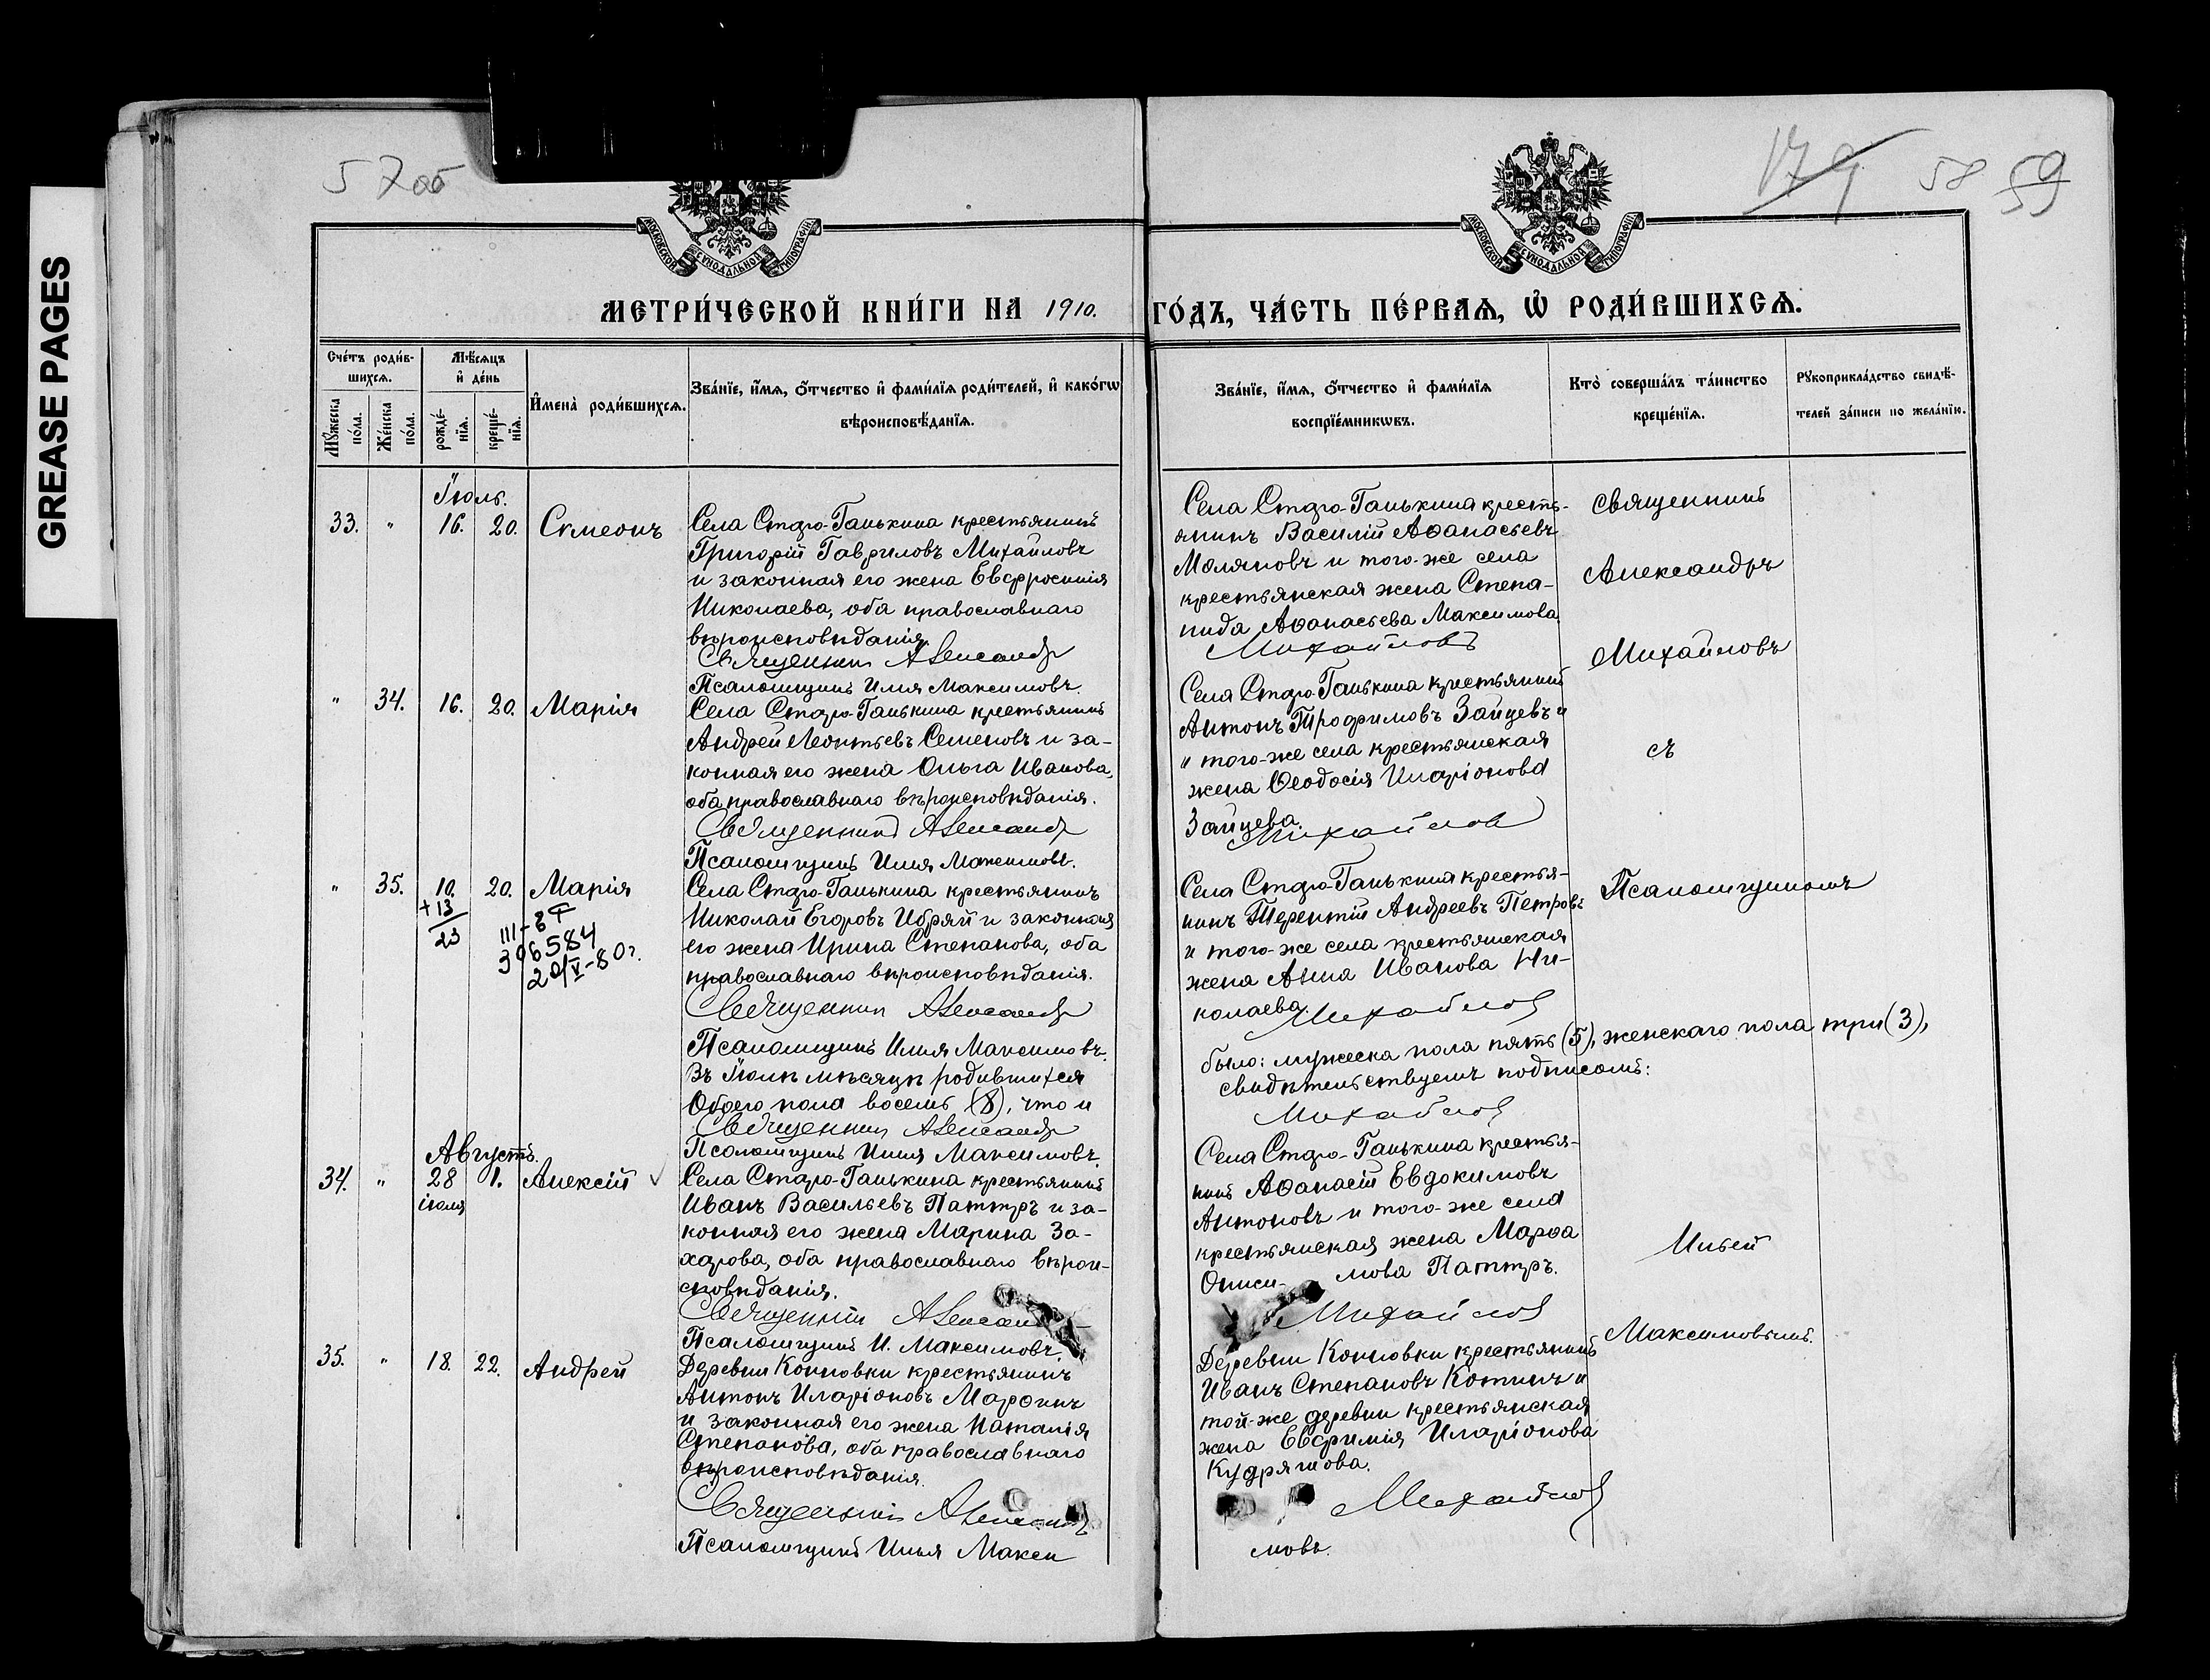 GREASE PAGES
57об
179 58 59
МОСКОВСКОЙ СѴНОДАЛЬНОЙ ТИПОГРАФІИ
МОСКОВСКОЙ СѴНОДАЛЬНОЙ ТИПОГРАФІИ
МЕТРИ́ЧЕСКОЙ КНИ́ГИ НА 1910. ГО́ДЪ, ЧА́СТЬ ПЕ́РВАѦ, Ѡ҆ РОДИ́ВШИХСѦ.
Сче́тъ роди́в-
шихсѧ.
Мꙋ́жеска по́ла.
Же́нска по́ла.
Мѣ́сѧцъ
и҆ де́нь
рожде́-
нїѧ.
креще́-
нїѧ.
И҆мена̀ роди́вшихсѧ.
Зва́нїе, и҆́мѧ, о҆́тчество и҆ фами́лїѧ роди́телей, и҆ како́гѡ
вѣроисповѣ́данїѧ.
Зва́нїе, и҆́мѧ, о҆́тчество и҆ фами́лїѧ
воспрїе́мникѡвъ.
Кто̀ соверша́лъ та́инство
креще́нїѧ.
Рꙋкоприкла́дство свидѣ́-
телей за́писи по жела́нїю.
Іюль.
33. " 16. 20. Симеонъ
Села Старо-Ганькина крестьянинъ
Григорій Гавриловъ Михайловъ
и законная его жена Евфросинія
Николаева, оба православнаго
вѣроисповѣданія.
Священникъ Александръ
Псаломщикъ Илія Максимовъ.
Села Старо-Ганькина кресть-
янинъ Василій Аѳанасьевъ
Моляновъ и того-же села
крестьянская жена Степа-
нида Аѳанасьева Максимова
Михайловъ
Священникъ
Александръ
Михайловъ
съ
Псаломщикомъ
Ильей
Максимовымъ.
" 34. 16. 20. Марія
Села Старо-Ганькина крестьянинъ
Андрей Леонтьевъ Семеновъ и за-
конная его жена Ольга Иванова,
оба православнаго вѣроисповѣданія.
Священникъ Александръ
Псаломщикъ Илія Максимовъ.
Села Старо-Ганькина крестьянинъ
Антонъ Трофимовъ Зайцевъ и
и того-же села крестьянская
жена Ѳеодосія Иларіонова
Зайцева.
Михайлов
" 35. 10. 20. Марія
+13
23
III-ВФ
396584
20/V-80г.
Села Старо-Ганькина крестьянинъ
Николай Егоровъ Ибряй и законная
его жена Ирина Степанова, оба
православнаго вѣроисповѣданія.
Священникъ Александръ
Псаломщикъ Илія Максимовъ.
Села Старо-Ганькина крестья-
нинъ Терентій Андреевъ Петровъ
и того-же села крестьянская
жена Анна Иванова Ни-
колаева.
Михайловъ
Въ Іюлѣ мѣсяцѣ родившихся
Обоего пола восемь (8), что и
Священникъ Александръ
Псаломщикъ Илія Максимовъ.
было: мужеска пола пять (5), женскаго пола три (3),
свидѣтельствуемъ подписомъ:
Михайловъ
Августъ.
34. " 28 1. Алексій
іюля
Села Старо-Ганькина крестьянинъ
Иванъ Васильевъ Паттръ и за-
конная его жена Марина За-
харова, оба православнаго вѣрои-
сповѣданія.
Священникъ Александръ
Псаломщикъ И. Максимовъ.
Села Старо-Ганькина крестья-
нинъ Аѳанасій Евдокимовъ
Антоновъ и того-же села
крестьянская жена Марѳа
Ониси- мова Паттръ.
Михайлов
35. " 18. 22. Андрей
Деревни Конновки крестьянинъ
Антонъ Иларіоновъ Марѳинъ
и законная его жена Наталія
Степанова, оба православнаго
вѣроисповѣданія.
Священникъ Александръ
Псаломщикъ Илья Макси
Деревни Конновки крестьянинъ
Иванъ Степановъ Котинъ и
той-же деревни крестьянская
жена Евфимія Иларіонова
Кудряшова.
Михайлов
мовъ.